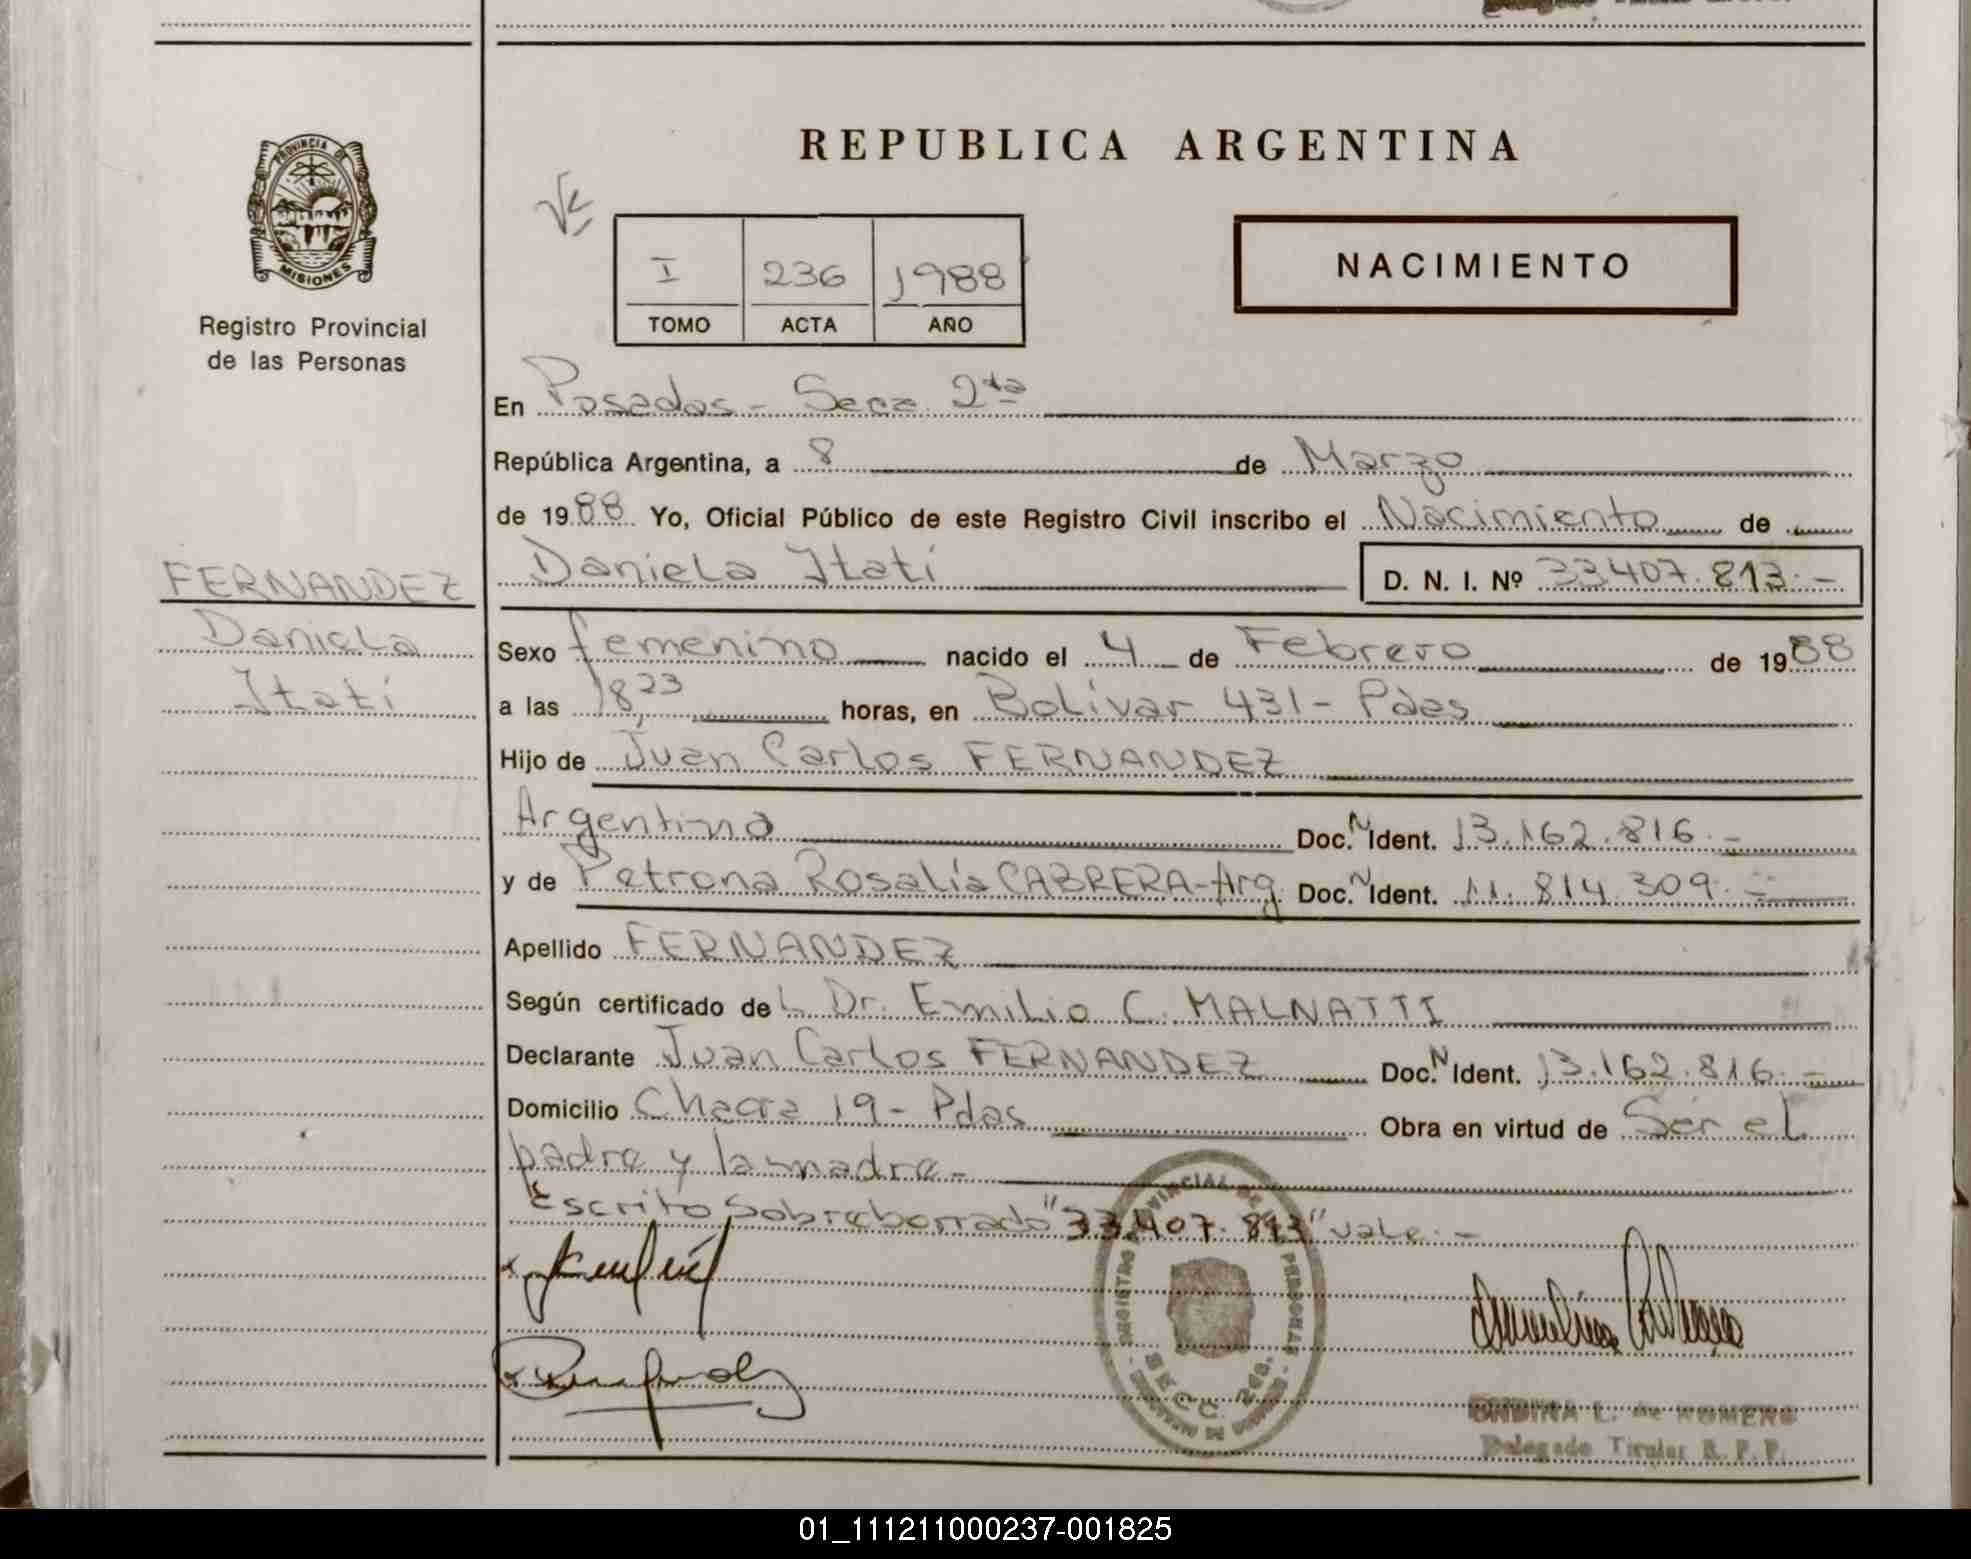 PROVINCIA DE
MISIONES
Registro Provincial
de las Personas
FERNANDEZ
Daniela
Itatí
REPUBLICA ARGENTINA
I 236 1988
TOMO ACTA AÑO
NACIMIENTO
En Posadas - Secc 2da
República Argentina, a 8 de Marzo
de 1988 Yo, Oficial Público de este Registro Civil inscribo el Nacimiento de
Daniela Itatí D. N. I. Nº 33.407.813.-
Sexo femenino nacido el 4 de Febrero de 1988
a las 18,23 horas, en Bolívar 431- Pdas
Hijo de Juan Carlos FERNANDEZ
Argentino Doc. N Ident. 13.162.816.-
y de Petrona Rosalía CABRERA-Arg. Doc. N Ident. 11.814.309.-
Apellido FERNANDEZ
Según certificado del Dr. Emilio C. MALNATTI
Declarante Juan Carlos FERNANDEZ Doc. N Ident. 13.162.816.-
Domicilio Chacra 19- Pdas Obra en virtud de Ser el
padre y la madre.-
Escrito Sobreborrado "33.407.813" vale.-
SECC. 2da.
ONDINA L. de ROMERO
Delegado Titular R. P. P.
01_111211000237-001825